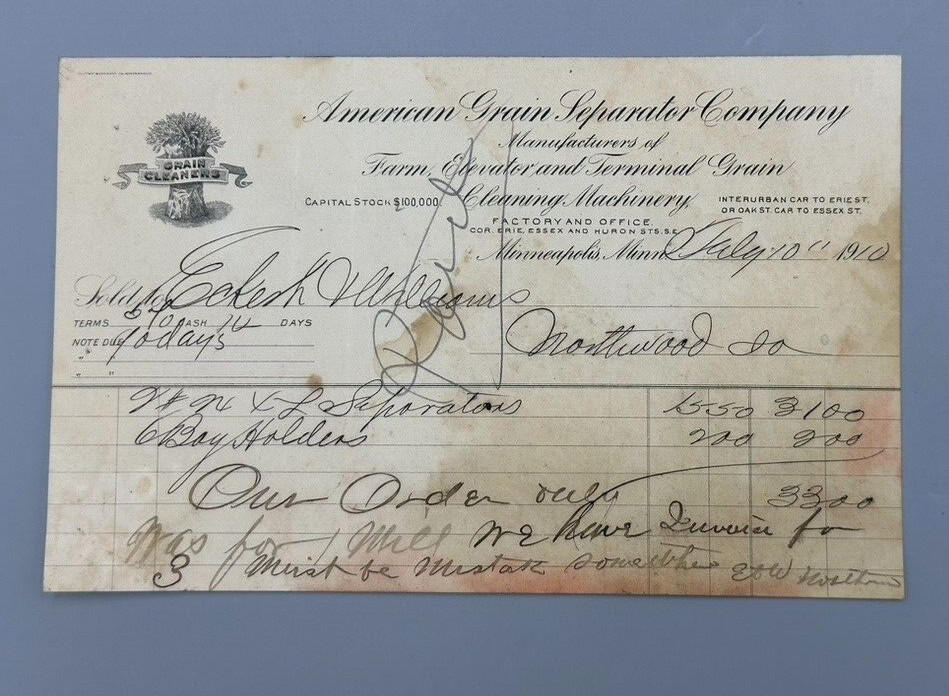 American Grain Separator Company
Manufacturers of
Farm, Elevator and Terminal Grain
Cleaning Machinery,
GRAIN
CLEANERS
CAPITAL STOCK $100,000.
INTERURBAN CAR TO ERIE ST.
OR OAK ST. CAR TO ESSEX ST.
FACTORY AND OFFICE.
COR. ERIE, ESSEX AND HURON STS. S.E.
Minneapolis, Minn. July 10" 1910
Sold to & Williams
TERMS 5% CASH DAYS
NOTE DUE 90 days
" "
" "
Northwood Io
X L Separators 1550 3100
Bag Holders 200 200
3300
Our Order only
Was for 1 Mill We Have Invoice for
3 Must be Mistake somewhere